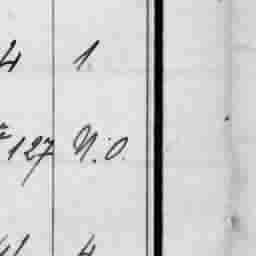 4 1.
127 N.O.
4